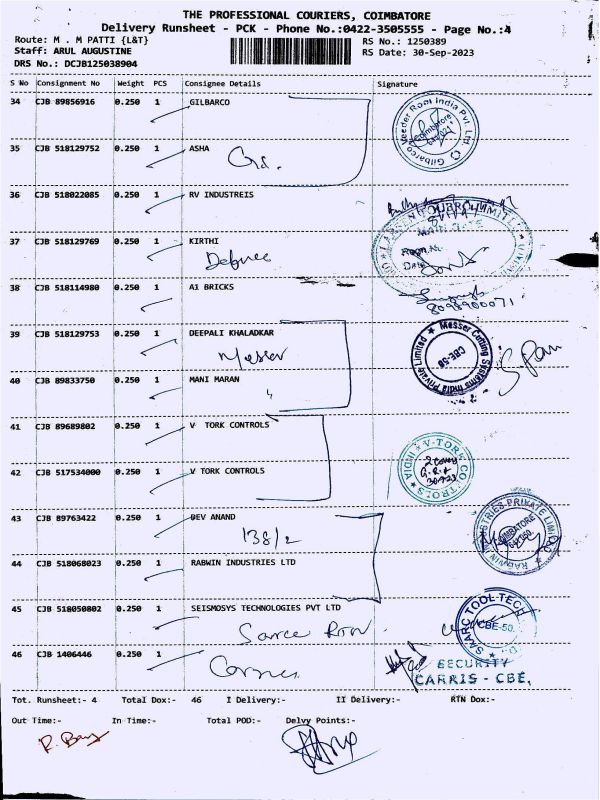 THE PROFESSIONAL COURIERS, COIMBATORE
Delivery Runsheet - PCK - Phone No.:0422-3505555 - Page No.:4
Route: M . M PATTI {L&T}
RS No.: 1250389
Staff: ARUL AUGUSTINE
RS Date: 30-Sep-2023
DRS No.: DCJB125038904
S No Consignment No Weight PCS Consignee Details Signature
34 CJB 89856916 0.250 1 GILBARCO
Gilbarco Veeder Root India Pvt. Ltd.
35 CJB 518129752 0.250 1 ASHA
36 CJB 518022085 0.250 1 RV INDUSTREIS
37 CJB 518129769 0.250 1 KIRTHI
Defence
38 CJB 518114980 0.250 1 A1 BRICKS
8098900071
39 CJB 518129753 0.250 1 DEEPALI KHALADKAR
Messer
Messer Cutting Systems India Private Limited ★ CBE-50
40 CJB 89833750 0.250 1 MANI MARAN
41 CJB 89689802 0.250 1 V TORK CONTROLS
V-TORK CONTROLS ★ INDIA
42 CJB 517534000 0.250 1 V TORK CONTROLS
43 CJB 89763422 0.250 1 DEV ANAND
138/2
44 CJB 518068023 0.250 1 RABWIN INDUSTRIES LTD
RABWIN INDUSTRIES PRIVATE LIMITED COIMBATORE
45 CJB 518050802 0.250 1 SEISMOSYS TECHNOLOGIES PVT LTD
SAARC TOOL-TECH CBE-50.
46 CJB 1406446 0.250 1
SECURITY
CARRIS - CBE.
Tot. Runsheet:- 4 Total Dox:- 46 I Delivery:- II Delivery:- RTN Dox:-
Out Time:- In Time:- Total POD:- Delvy Points:-